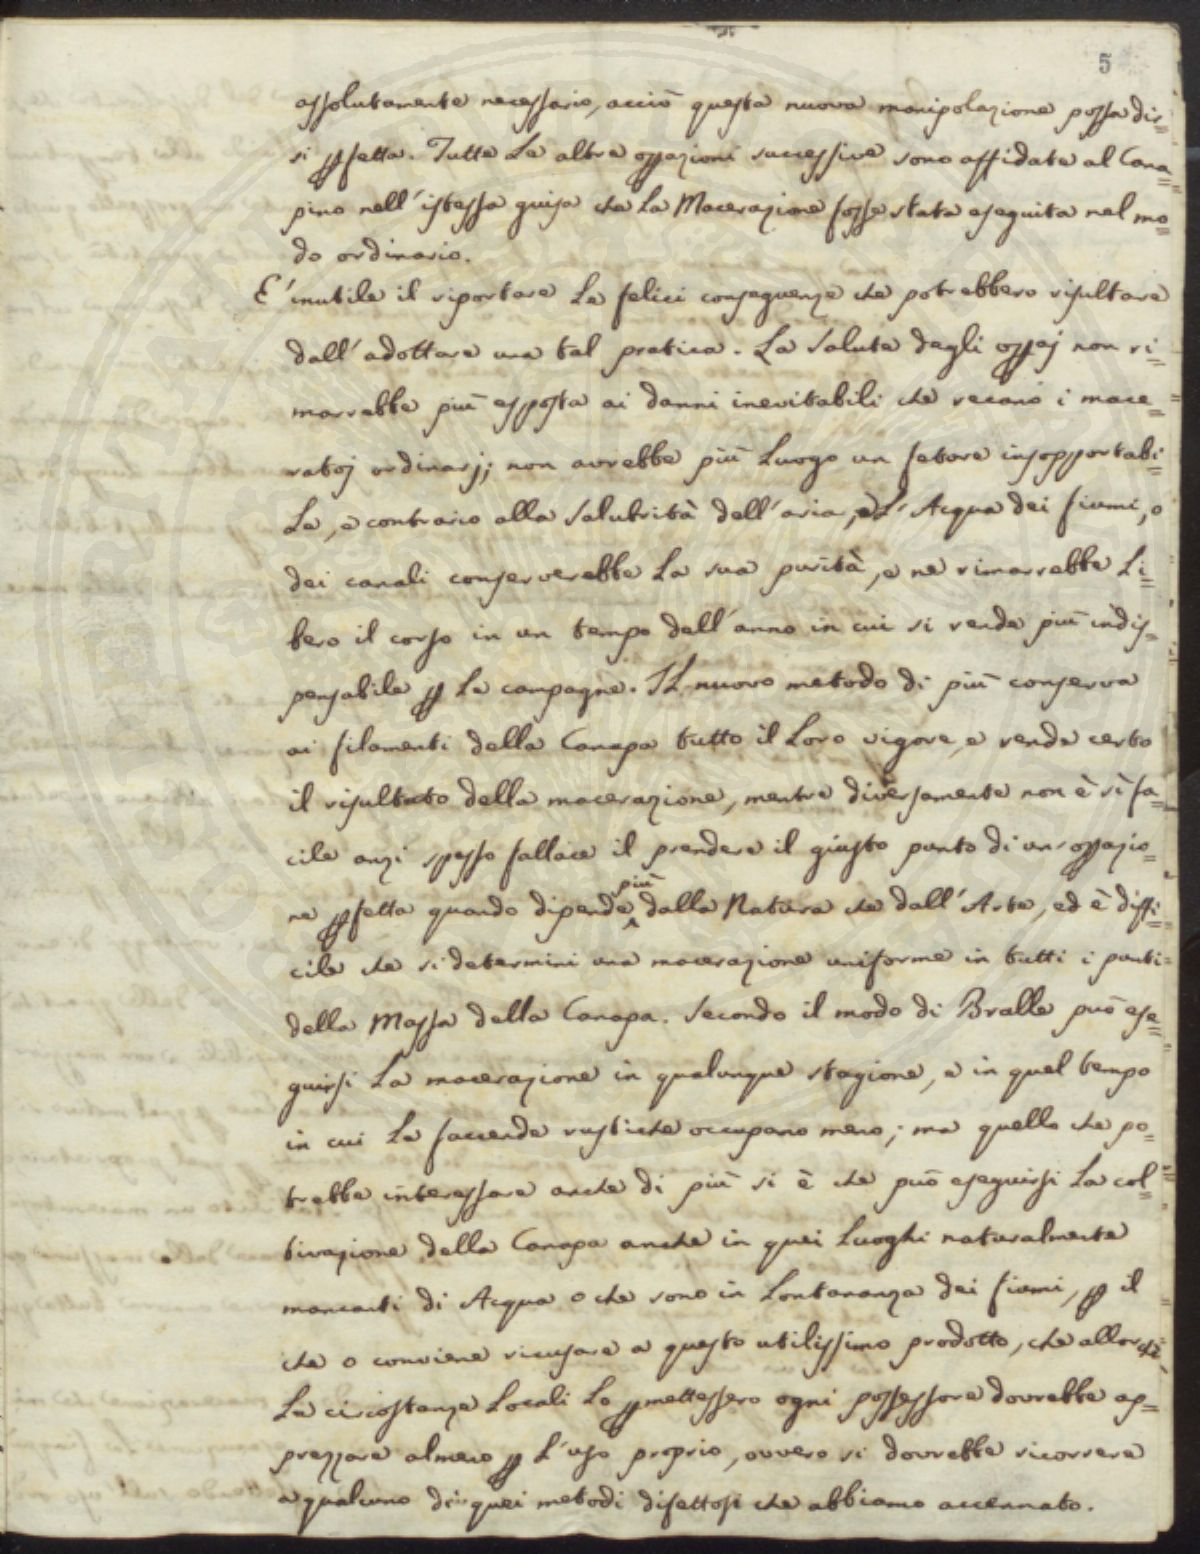 5
assolutamente necessario, acciò questa nuova manipolazione possa dir=
si pfetta. Tutte le altre opazioni successive sono affidate al Cana=
pino nell'istessa guisa che la Macerazione fosse stata eseguita nel mo=
do ordinario.
E' inutile il riportare le felici conseguenze che potrebbero risultare
dall'adottare una tal pratica. La salute degli opaj non ri=
marrebbe più esposta ai danni inevitabili che recano i mace=
ratoj ordinarj; non avrebbe più luogo un fetore insopportabi=
le, e contrario alla salubrità dell'aria, e l'Acqua dei fiumi, o
dei canali conserverebbe la sua purità, e ne rimarrebbe li=
bero il corso in un tempo dell'anno in cui si rende più indis=
pensabile p le campagne. Il nuovo metodo di più conserva
ai filamenti della Canapa tutto il loro vigore, e rende certo
il risultato della macerazione, mentre diversamente non è sì fa=
cile anzi spesso fallace il prendere il giusto punto di un opazio=
ne pfetta quando dipende più dalla Natura che dall'Arte, ed è diffi=
cile che si determini una macerazione uniforme in tutti i punti
della Massa della Canapa. Secondo il modo di Bralle può ese=
guirsi la macerazione in qualunque stagione, e in quel tempo
in cui le faccende rustiche occupano meno; ma quello che po=
trebbe interessare anche di più si è che può eseguirsi la col=
tivazione della Canapa anche in quei luoghi naturalmente
mancanti di Acqua o che sono in lontananza dei fiumi, p il
che o conviene ricusare a questo utilissimo prodotto, che allor
le circostanze locali lo pmettessero ogni possessore dovrebbe ap=
prezzare almeno p l'uso proprio, ovvero si dovrebbe ricorrere
a qualcuno di quei metodi difettosi che abbiamo accennato.